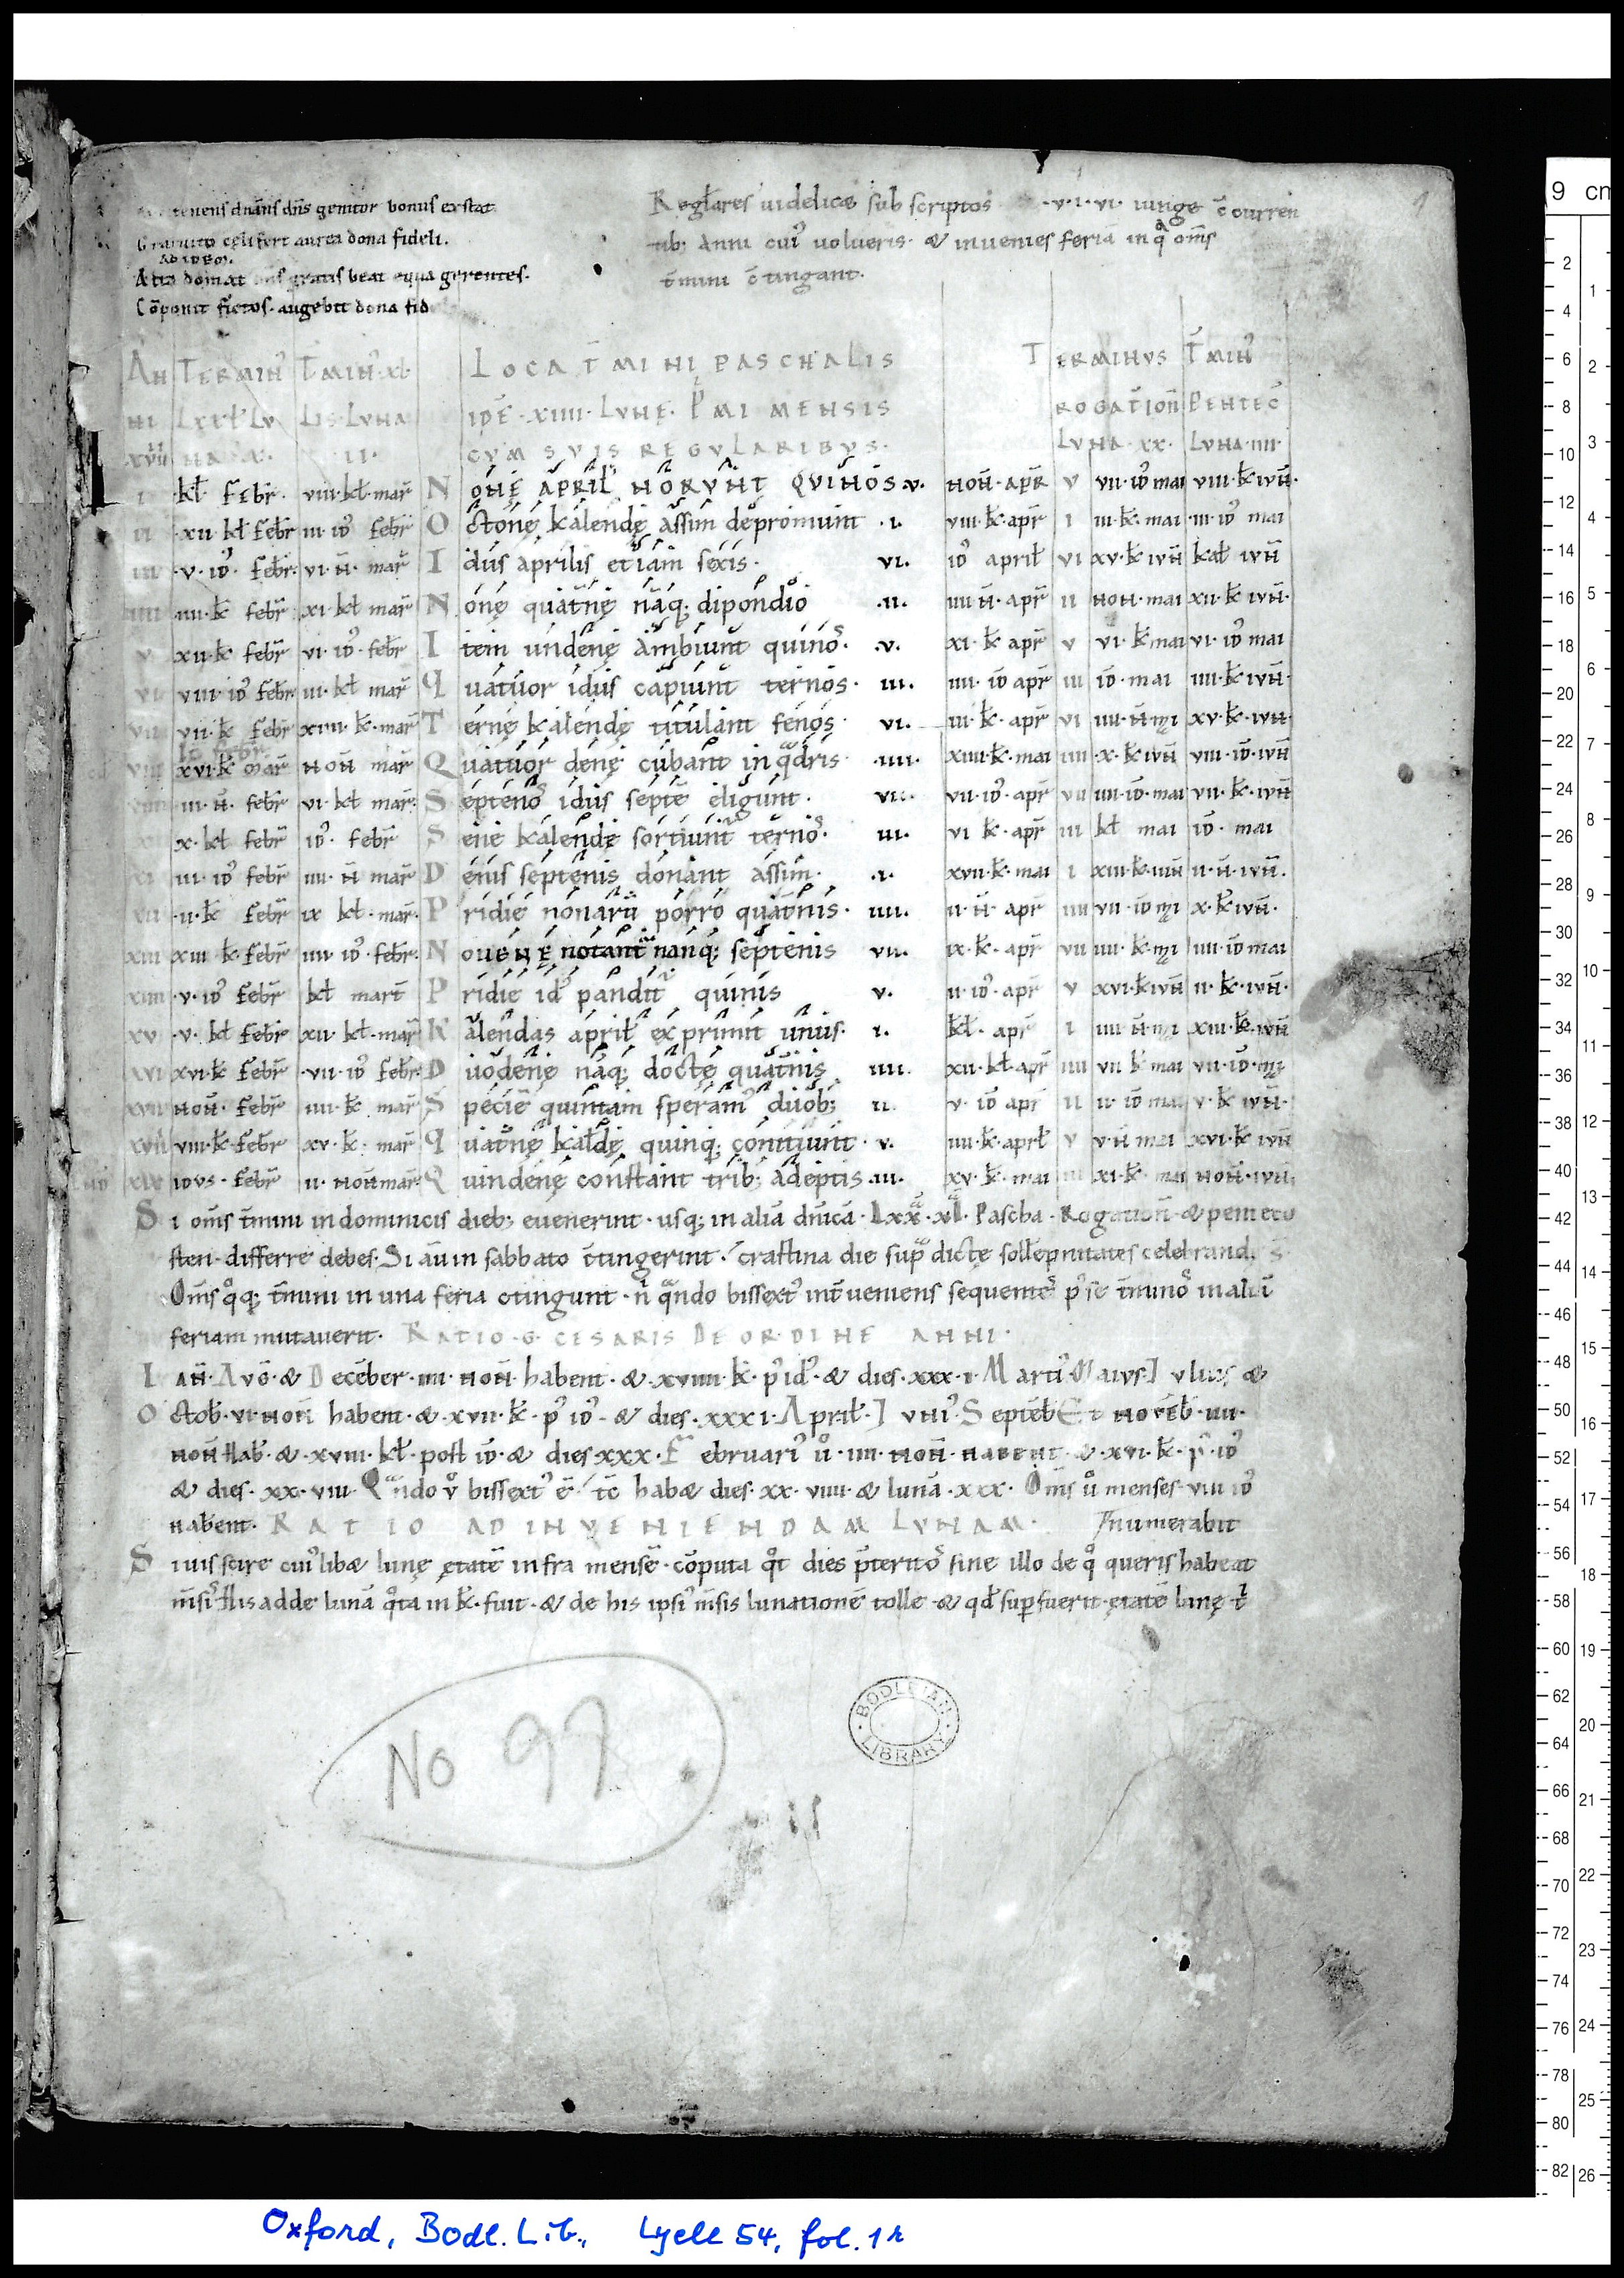 tenens dnans dns genitor bonus exstat
celi fert aurea dona fideli.
gratis beat equa gerentes.
Cōponit fictos. augebit dona fid
Regłares uidelicæ sub scriptos .v.i.vi. iunge c̄curren
tib; anni cuiꝰ uolueris. & inuenies feriā in oms
t̄mini c̄tingant.
1
AN TERMIN T̄MIN xl LOCA T̄MINI PASCHALIS TERMINVS T̄MIN
NI Lxxł LV LIS LVNA IDĒ .XIIII. LVNĘ. P̄MI MENSIS ROGATION̄ PENTEC̄
NA X. II. CVM SVIS REGVLARIBVS. LVNA .XX. LVNA IIII
i kł febr. viii. kł. mar̄ N onę april norunt quinos .v. non̄. apr̄ v vii. id mai viii. k. iun̄.
ii xii kł febr̄ iii. id febr̄ O ctonę kalendę assim depromunt .i. viii. k. apr̄ i iii. k. mai iii. id mai
iii .v. id. febr. vi. n̄. mar̄ I dus aprilis etiam sexis. vi. id april vi xv. k iun̄ kał iun̄
iiii iiii. k febr̄ xi. kł mar̄ N onę quat̄nę naq; dipondio .ii. iiii n̄. apr̄ ii non. mai xii. k iun̄.
v xii. k febr̄ vi. id. febr̄ I tem undenę ambiunt quinos. .v. xi. k apr̄ v vi. k mai vi. id mai
vi viii. id febr iii. kł mar̄ Q uatuor idus capiunt ternos. iii. iiii. id apr̄ iii id. mai iiii. k iun̄.
vii vii. k febr xiiii. k. mar̄ T ernę kalendę titulant senos. vi. iii. k. apr̄ vi iiii. n̄. mi xv. k. iun̄.
viii xvi. k mar̄ non̄ mar̄ Q uatuor denę cubant in qdris. .iiii. xiiii. k. mai iiii x. k iun̄ viii. id. iun̄
iii. n̄. febr̄ vi. kł mar̄. S eptenos idus septē eligunt. vii. vii. id. apr̄ vii iiii. id. mai vii. k. iun̄
x. kł febr̄ id. febr̄ S enę kalendę sortiunt ternos. iii. vi k. apr̄ iii kł mai id. mai
xi iii. id febr̄ iiii. n̄ mar̄ D enis septenis donant assim. .i. xvii. k. mai i xiii. k. iun̄ ii. n̄. iun̄.
xii .ii. k febr̄ ix kł. mar̄. P ridię nonarū porro quat̄nis. iiii. ii. n̄. apr̄ iiii vii. id mi x. k. iun̄.
xiii xiii k. febr̄ iiii. id. febr. N ouenę notant nanq; septenis vii. ix. k. apr̄ vii iiii. k. mi iiii. id mai
xiiii .v. id febr̄ kł mart̄ P ridię id pandit quinis v. ii. id. apr̄ v xvi. k iun̄ ii. k. iun̄.
xv .v. kł febr̄ xii. kł. mar̄ K alendas april exprimit unus. i. kł. apr̄ i iiii. n̄. mi xiii. k. iun̄
xvi xvi. k febr̄ .vii. id febr. D uodenę naq; doctę quat̄nis iiii. xii. kł. apr̄ iiii vii k mai vii. id. mi
xvii non̄. febr̄ iiii. k mar̄ S peciē quintam speram duob; ii. v. id apr̄ ii ii. id mai v. k iun̄.
xviii viii. k. febr̄ xv. k. mar̄ Q uat̄nę kałdę quinq; coniciunt. v. iiii. k. aprł v v. n̄ mai xvi. k iun̄
xix idus. febr̄ ii. non̄ mar̄. Q uindenę constant trib; adeptis .iii. xv. k. mai iii xi. k. mai non̄. iun̄
S i oms t̄mini in dominicis dieb; euenerint. usq; in aliā dnicā. Lxx. xl. Pascha. Rogation̄. & penteco
sten. differre debes. Si aū in sabbato c̄tingerint. crastina die sup̄ dictę sollēpnitates celebrand
Oms qq; t̄mini in una feria c̄tingunt. n̄ qndo bissextꝰ int̄ueniens sequentes p se t̄minos in aliā
feriam mutauerit. RATIO .G. CESARIS DE ORDINE ANNI.
I an̄. Aug. & Decēber. iiii. non̄ habent. & xviiii k. p id. & dies. xxx. i. Marti Maius Iulius &
O ctob. vi. non̄ habent. & .xvii. k. p id. & dies. xxxi. April. Iuniꝰ. Septēb Et nouēb. iiii.
non̄ hab. & .xviii. kł. post id. & dies xxx. Februariꝰ ū. iiii. non̄. habent. & .xvi. k. p. id
& dies. xx. viii. Qndo ū bissextꝰ ē. tc habæ dies. xx. viiii. & lunā. xxx. Oms ū menses viii id
habent. RATIO AD INVENIENDAM LVNAM. numerabit
S i uis scire cuiꝰlibæ lunę ętatē infra mensē. cōputa qt dies p̄teritos sine illo de q queris habeat
m̄sis. His adde lunā qta in k. fuit. & de his ipsiꝰ m̄sis lunationē tolle. & qd sup̄fuerit. ętatē lunę t
No 97
BODLEIAN LIBRARY
Oxford, Bodl. Lib., Lyell 54, fol. 1r